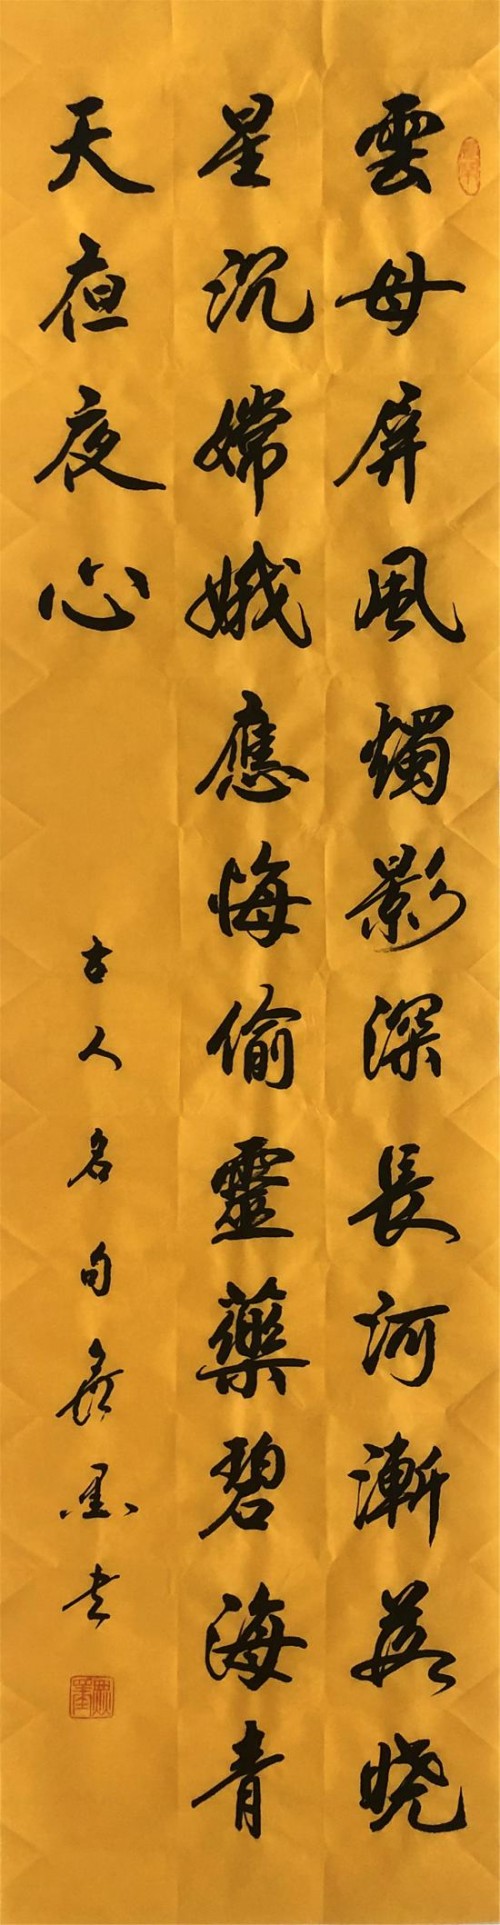 雲母屏風燭影深長河漸落曉
星沉嫦娥應悔偷靈藥碧海青
天夜夜心
古人名句 墨书